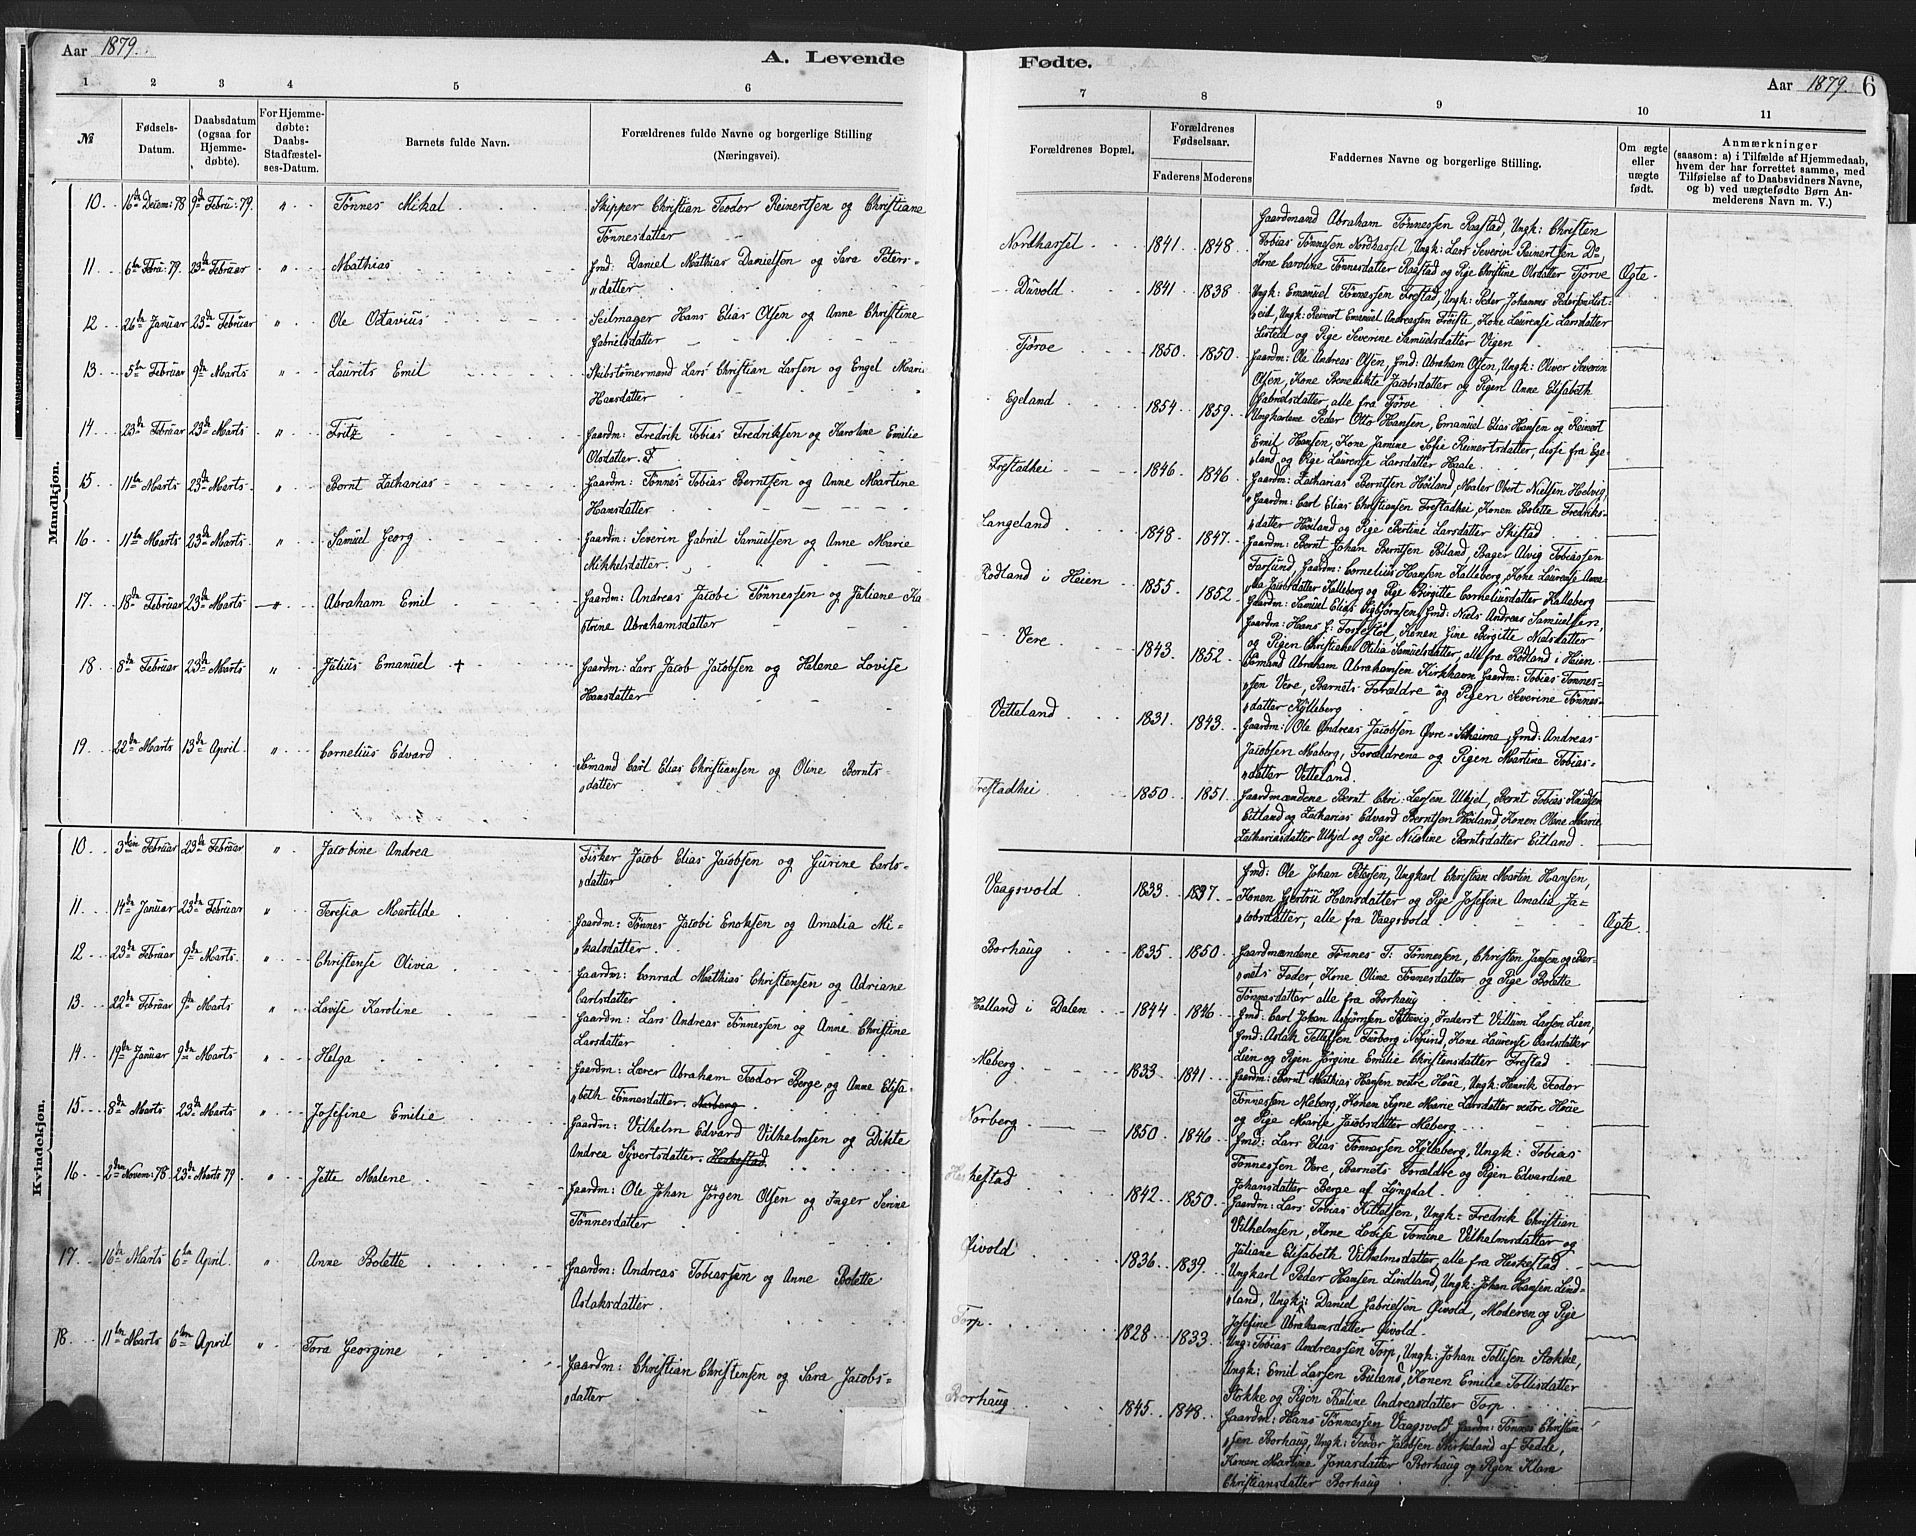 Aar 1879.
A. Levende
1 2 3 4 5 6
№
Fødsels-
Datum.
Daabsdatum
(ogsaa for
Hjemme-
døbte).
For Hjemme-
døbte:
Daabs-
Stadfæstel-
ses-Datum.
Barnets fulde Navn.
Forældrenes fulde Navne og borgerlige Stilling
(Næringsvei).
Mandkjøn.
10 16de Decem: 78 9de Febru: 79. " Tönnes Mikal Skipper Christian Teodor Reinertsen og Christiane
Tönnesdatter
11 6te Febru: 79. 23de Februar " Mathias Grmd: Daniel Mathias Danielsen og Sara Peters-
"datter
12 26de Januar 23de Februar " Ole Octavius Seilmager Hans Elias Olsen og Anne Christine
Gabrielsdatter
13 5te Februar 9de Marts " Laurits Emil Skibstömermand Lars Christian Larsen og Engel Marie
Hansdatter
14 23de Februar 23de Marts " Fritz Gaardm: Fredrik Tobias Fredriksen og Karoline Emilie
Olsdatter. F
15 11te Marts 23de Marts " Bernt Zacharias Gaardm: Tönnes Tobias Berntsen og Anne Martine
Hansdatter
16 11te Marts 23de Marts " Samuel Georg Gaardm: Severin Gabriel Samuelsen og Anne Marie
Mikkelsdatter.
17. 18de Februar 23de Marts " Abraham Emil Gaardm: Andreas Jacobi Tönnessen og Juliane Ka-
"trine Abrahamsdatter
18 8de Februar 23de Marts " Julius Emanuel + Gaardm: Lars Jacob Jacobsen og Helene Lovise
Hansdatter
19 22de Marts 13de April " Cornelius Edvard Sömand Carl Elias Christiansen og Oline Bernts-
"datter
Kvindekjøn.
10 3die Februar 23de Februar " Jacobine Andrea Fisker Jacob Elias Jacobsen og Gurine Carls-
"datter
11. 14de Januar 23de Februar " Teresia Martilde Gaardm: Tönnes Jacobi Enoksen og Amalia Mi-
"kalsdatter
12 23de Februar 9de Marts " Christense Olivia Gaardm: Conrad Mathias Christensen og Adriane
Carlsdatter
13. 22de Februar 9de Marts " Lovise Karoline Gaardm: Lars Andreas Tönnessen og Anne Christine
Larsdatter
14 19de Januar 9de Marts " Helga Gaardm: Lærer Abraham Teodor Berge og Anne Elisa-
"beth Tönnesdatter. Norberg
15. 8de Marts 23de Marts " Josefine Emilie Gaardm: Vilhelm Edvard Vilhelmsen og Dikte
Andrea Sivertsdatter. Heskestad
16 2den Novem: 78 23de Marts 79 " Jette Malene Gaardm: Ole Johan Jörgen Olsen og Inger Serine
Tönnesdatter
17. 16de Marts 6te April " Anne Bolette Gaardm: Andreas Tobiassen og Anne Bolette
Aslaksdatter
18. 11te Marts 6te April " Tora Georgine Gaardm: Christian Christensen og Sara Jacobs-
"datter
Fødte.
Aar 1879. 6
7 8 9 10 11
Forældrenes Bopæl.
Forældrenes
Fødselsaar.
Faderens Moderens
Faddernes Navne og borgerlige Stilling.
Om ægte
eller
uægte
født.
Anmærkninger
(saasom: a) i Tilfælde af Hjemmedaab,
hvem der har forrettet samme, med
Tilføielse af to Daabsvidners Navne,
og b) ved uægtefødte Børn An-
melderens Navn m. V.)
Gaardmand Abraham Tönnessen Raastad, Ungk: Christen
Nordhassel 1841 1848 Tobias Tönnesen Nordhassel, Ungk: Lars Severin Reinertsen Do
Kone Caroline Tönnesdatter Raastad og Pige Christine Olsdatter Tjörve Ægte
Duvold 1841 1838 Ungk: Emanuel Tönnessen Frestad, Ungk: Peder Johannes Pedersen List-
"eid, Ungk: Reinert Emanuel Andreassen Fröiste, Kone Laurense Larsdatter
Listeid og Pige Severine Samuelsdatter Vigen
Tjörve 1850 1850 Gaardm: Ole Andreas Olsen, Grmd: Abraham Olsen, Ungk: Oliver Severin
Olsen, Kone Benedikte Jacobsdatter og Pigen Anne Elisabeth
Gabrielsdatter, alle fra Tjörve
Egeland 1854 1859 Ungkarlene Peder Otto Hansen, Emanuel Elias Hansen og Reinert
Emil Hansen, Kone Jamine Sofie Reinertsdatter, disse fra Ege-
"land og Pige Laurense Larsdatter Haale
Frestadhei 1846 1846 Gaardm: Zacharias Berntsen Höiland, Maler Obert Nielsen Helvig,
Gaardm: Carl Elias Christiansen Frestadhei, Konen Bolette Fredriks-
"datter Höiland og Pige Bertine Larsdatter Skifstad
Langeland 1848 1847 Gaardm: Bernt Johan Berntsen Büland, Bager Alvig Tobiassen
Farsund, Gaardm: Cornelius Hansen Kalleberg, Kone Laurense Anne
Jacobsdatter Kalleberg og Pige Birgitte Corneliusdatter Kalleberg
Rödland i Heien 1855 1852 Gaardm: Samuel Elias Asbjörnsen, Grmd: Niels Andreas Samuelsen,
Gaardm: Hans Forsestöl, Konen Gine Birgitte Nielsdatter
og Pigen Christiane Otilia Samuelsdatter, alle fra Rödland i Heien
Vere 1843 1852 Sömand Abraham Abrahamsen Kirkhavn Gaardm: Tobias Tönnes-
"sen Vere, Barnets Forældre og Pigen Severine Tönnes-
"datter Kjlleberg
Vetteland 1831 1843 Gaardm: Ole Andreas Jacobsen Övre-Skeime, Grmd: Andreas
Jacobsen Meberg, Forældrene og Pigen Martine Tobias-
"datter Vetteland.
Frestadhei 1850 1851 Gaardmændene Bernt Chr: Larsen Ulhjel, Bernt Tobias Knudsen
Eitland og Zacharias Edvard Berntsen Höiland, Konen Oline Marie
Zachariasdatter Ulhjel og Pige Nicoline Berntsdatter Eitland
Vaagsvold 1833 1837 Grmd: Ole Johan Petersen, Ungkarl Christian Martin Hansen,
Konen Gertru Hansdatter og Pige Josefine Amalia Ja-
"cobsdatter, alle fra Vaagsvold Ægte
Borhaug 1835 1850 Gaardmændene Tönnes T: Tönnessen, Christen Jansen og Bar-
"nets Fader, Kone Oline Tönnesdatter og Pige Bolette
Tönnesdatter alle fra Borhaug
Halland i Dalen 1844 1846 Grmd: Carl Johan Asbjörnsen Sellevig, Inderst Villum Larsen Lien,
Grmd: Aslak Tellefsen Furborg i Spind, Kone Laurense Carlsdatter
Lien og Pigen Jörgine Emilie Christensdatter Frestad
Meberg 1833 1841 Gaardm: Bernt Mathias Hansen vestre Höie, Ungk: Henrik Teodor
Tönnessen Meberg, Konen Signe Marie Larsdatter vestre Höie
og Pige Marie Jacobsdatter Meberg
Norberg 1850 1846 Grmd: Lars Elias Tönnessen Kjlleberg, Ungk: Tobias
Tönnessen Vere, Barnets Forældre og Pigen Edvardine
Johansdatter Berge af Lyngdal
Heskestad 1842 1850 Gaardm: Lars Tobias Kittelsen, Ungk: Fredrik Christian
Vilhelmsen, Kone Lovise Tomine Vilhelmsdatter og
Juliane Elisabeth Vilhelmsdatter, alle fra Heskestad
Öivold 1836 1839 Ungkarl Peder Hansen Lindland, Ungk: Johan Hansen Lind-
"land, Ungk: Daniel Gabrielsen Öivold, Moderen og Pige
Josefine Abrahamsdatter Öivold
Torp 1828 1833 Ung: Tobias Andreassen Torp, Ungk: Johan Tollisen Stokke,
Ungk: Emil Larsen Büland, Konen Emilie Tollisdatter
Stokke og Pigen Pauline Andreasdatter Torp
Borhaug 1845 1848 Gaardm: Hans Tönnessen Vaagsvold, Gaardm: Tönnes Christian-
"sen Borhaug, Ungk: Teodor Jacobsen Birkeland af Fedde,
Konen Martine Jonasdatter Borhaug og Pigen Klara
Christiansdatter Borhaug